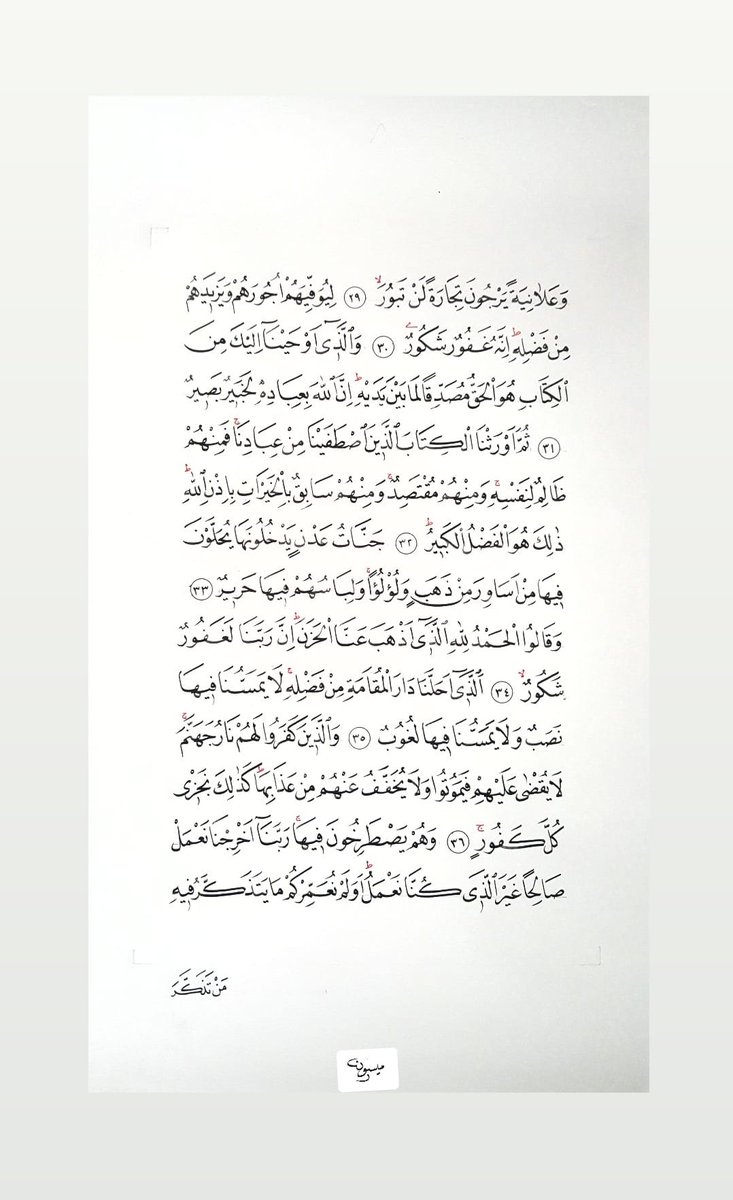 وَعَلَانِيَةً يَرْجُونَ تِجَارَةً لَنْ تَبُورَۙ ﴿٢٩﴾ لِيُوَفِّيَهُمْ اُجُورَهُمْ وَيَزِيدَهُمْ
مِنْ فَضْلِهِۜ اِنَّهُ غَفُورٌ شَكُورٌ ﴿٣٠﴾ وَالَّذِٓي اَوْحَيْنَٓا اِلَيْكَ مِنَ
الْكِتَابِ هُوَ الْحَقُّ مُصَدِّقًا لِمَا بَيْنَ يَدَيْهِۜ اِنَّ اللّٰهَ بِعِبَادِهِ لَخَبِيرٌ بَصِيرٌ
﴿٣١﴾ ثُمَّ اَوْرَثْنَا الْكِتَابَ الَّذِينَ اصْطَفَيْنَا مِنْ عِبَادِنَاۚ فَمِنْهُمْ
ظَالِمٌ لِنَفْسِهِۚ وَمِنْهُمْ مُقْتَصِدٌۚ وَمِنْهُمْ سَابِقٌ بِالْخَيْرَاتِ بِاِذْنِ اللّٰهِۜ
ذٰلِكَ هُوَ الْفَضْلُ الْكَبِيرُۜ ﴿٣٢﴾ جَنَّاتُ عَدْنٍ يَدْخُلُونَهَا يُحَلَّوْنَ
فِيهَا مِنْ اَسَاوِرَ مِنْ ذَهَبٍ وَلُؤْلُؤًاۚ وَلِبَاسُهُمْ فِيهَا حَرِيرٌ ﴿٣٣﴾
وَقَالُوا الْحَمْدُ لِلّٰهِ الَّذِٓي اَذْهَبَ عَنَّا الْحَزَنَۜ اِنَّ رَبَّنَا لَغَفُورٌ
شَكُورٌۙ ﴿٣٤﴾ الَّذِٓي اَحَلَّنَا دَارَ الْمُقَامَةِ مِنْ فَضْلِهِۚ لَا يَمَسُّنَا فِيهَا
نَصَبٌ وَلَا يَمَسُّنَا فِيهَا لُغُوبٌ ﴿٣٥﴾ وَالَّذِينَ كَفَرُوا لَهُمْ نَارُ جَهَنَّمَۚ
لَا يُقْضٰى عَلَيْهِمْ فَيَمُوتُوا وَلَا يُخَفَّفُ عَنْهُمْ مِنْ عَذَابِهَاۜ كَذٰلِكَ نَجْزِي
كُلَّ كَفُورٍۚ ﴿٣٦﴾ وَهُمْ يَصْطَرِخُونَ فِيهَاۚ رَبَّنَٓا اَخْرِجْنَا نَعْمَلْ
صَالِحًا غَيْرَ الَّذِي كُنَّا نَعْمَلُۜ اَوَلَمْ نُعَمِّرْكُمْ مَا يَتَذَكَّرُ فِيهِ
مَنْ تَذَكَّرَ
ميسون